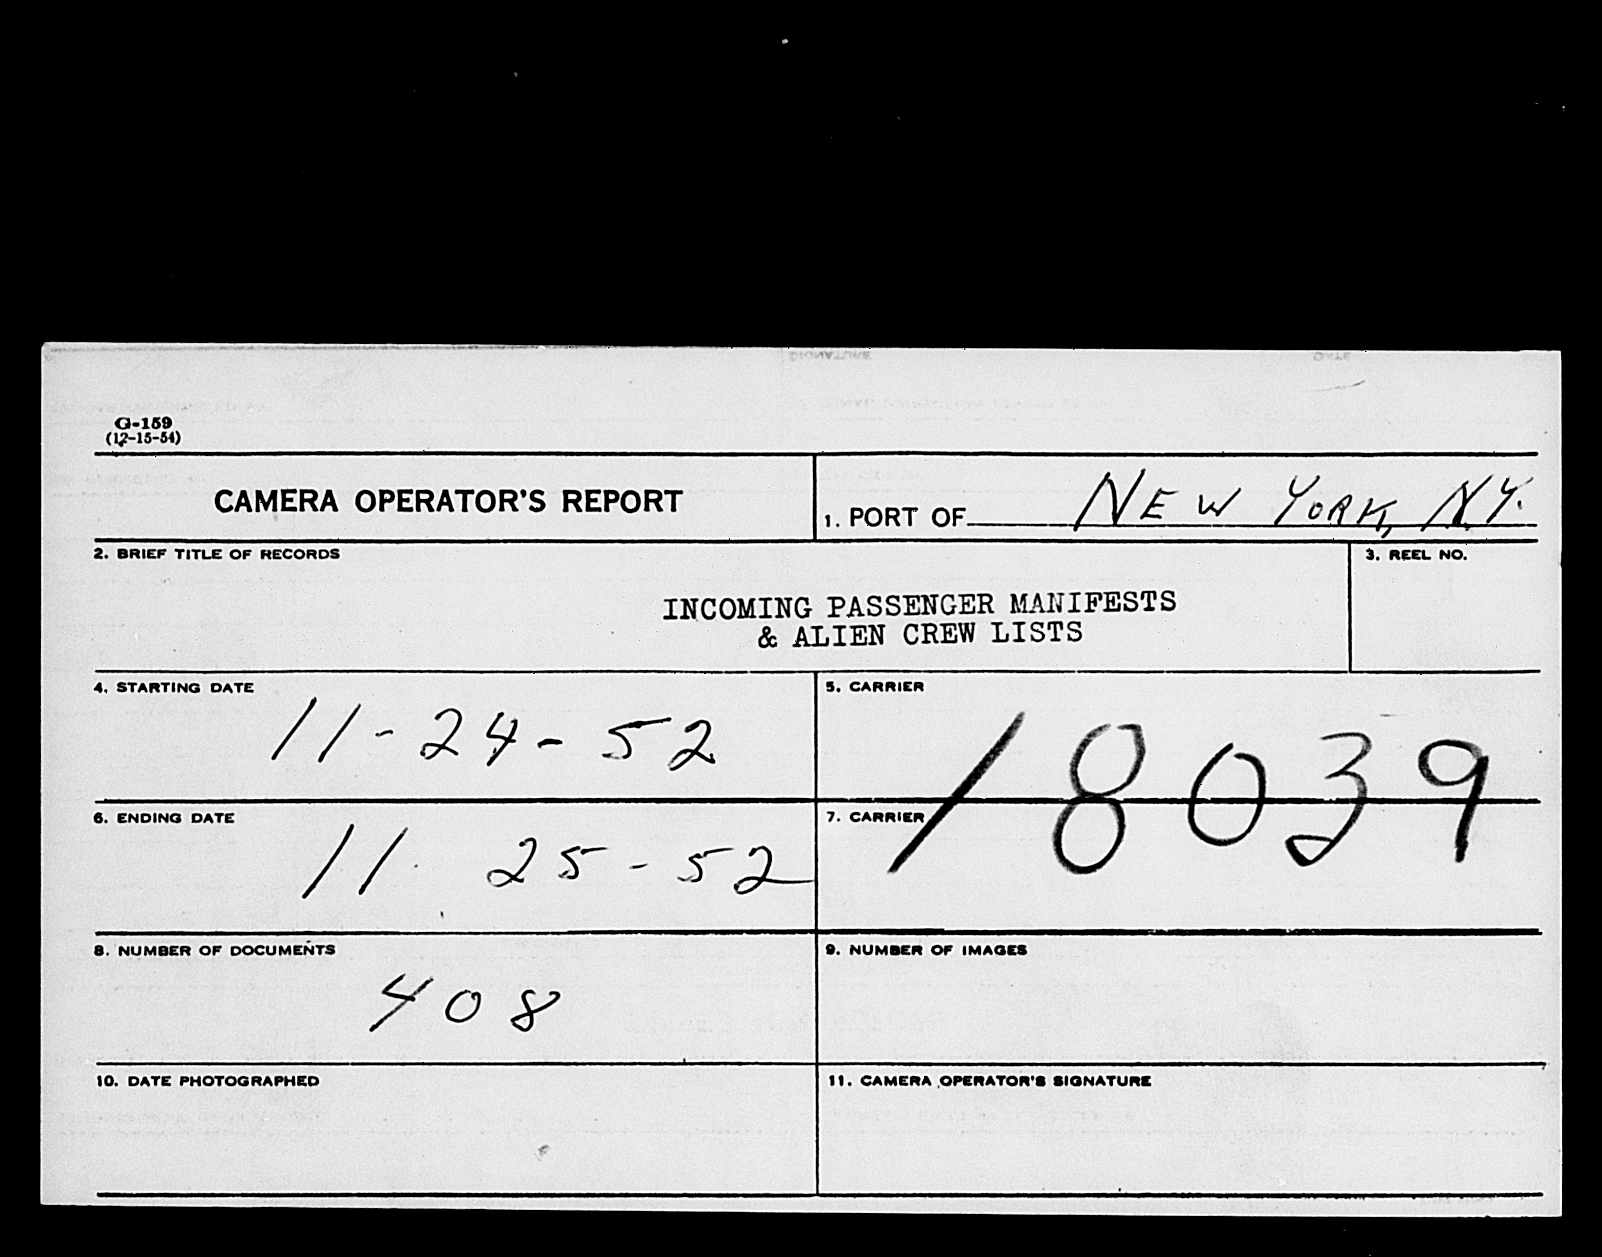 G-159
(12-15-54)
CAMERA OPERATOR'S REPORT
1. PORT OF NEW YORK, N.Y.
2. BRIEF TITLE OF RECORDS
3. REEL NO.
INCOMING PASSENGER MANIFESTS
& ALIEN CREW LISTS
4. STARTING DATE
11-24-52
5. CARRIER
18039
6. ENDING DATE
11 25-52
7. CARRIER
8. NUMBER OF DOCUMENTS
408
9. NUMBER OF IMAGES
10. DATE PHOTOGRAPHED
11. CAMERA OPERATOR'S SIGNATURE